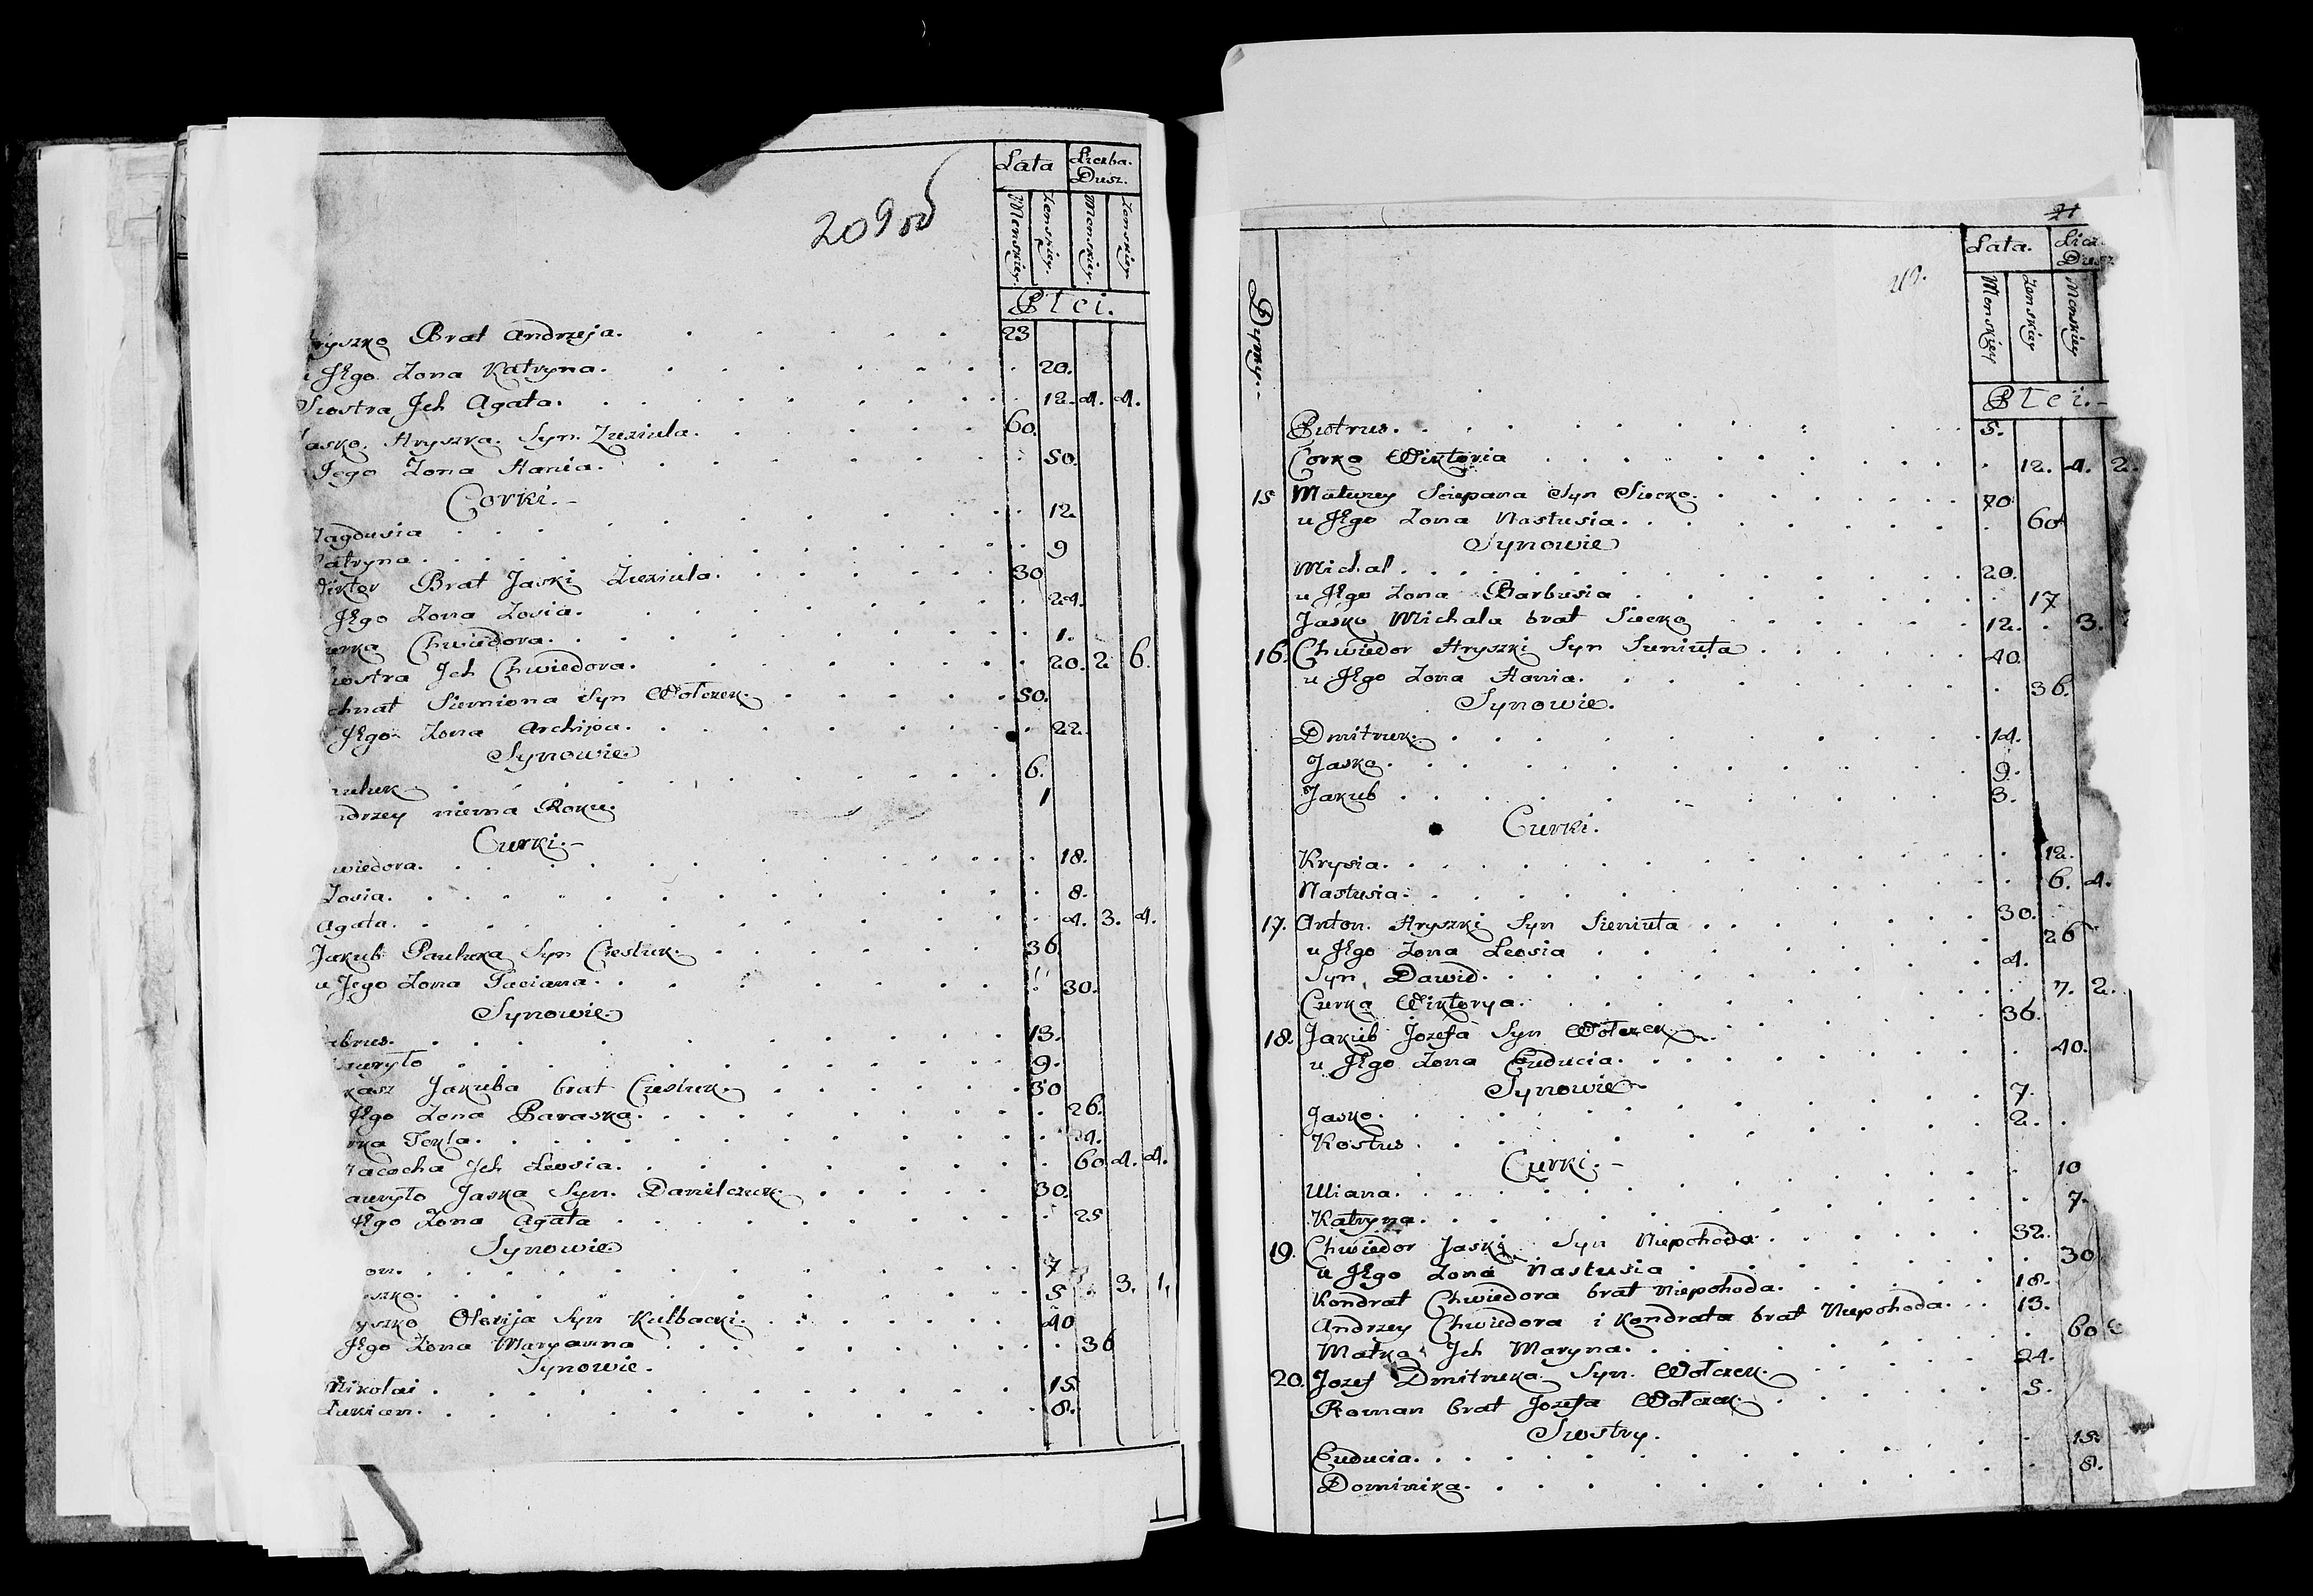 209 об
Lata Liczba Dusz.
Męnskiey. Zenskiey. Męnskiey. Zenskiey.
Płci.
ryszko Brat Andrzeja. 23
u Jego Zona Katryna. 20.
Siostra Jch Agata. 12. 4. 4.
asko Hryszka Syn Zuziula. 60.
Jego Zona Hania. 50.
Corki.-
agdusia 12
atryna. 9
iktor Brat Jaski Zuziula. 30
Jego Zona Zosia. 24.
urka Chwiedora. 1.
iostra Jch Chwiedora. 20. 2 6.
chnat Siemiona Syn Wołczek. 50.
Jego Zona Archipa. 22.
Synowie
auluk 6.
ndrzey niema Roku. 1
Curki.-
wiedora. 18.
Zosia. 8.
Agata. 4. 3. 4.
Jakub Pauluka Syn Ciesluk. 36
u Jego Zona Taciana. 30.
Synowie
abrus. 13.
auryło 9.
kasz Jakuba brat Ciesluk. 30
Jego Zona Paraska. 26.
rka Tekla. 4.
acocha Jch Leosia. 60. 4. 4.
auryło Jaska Syn. Danilczuk. 30.
Jego Zona Agata 25
Synowie
on. 7
szko. 5 3. 1.
yszko Olexija Syn Kulbacki. 40
Jego Zona Maryanna 36
Synowie.
Mikołai 15
Łukian. 8.
21
Dymy.-
Lata. Licz Dusz
Męnskiey Zenskiey Męnskiey
Płci.-
Piotrus. 5.
Corka Wiktoria 12. 4. 2.
15 Matwey Sciepana Syn Siecko. 70
u Jego Zona Nastusia. 60
Synowie
Michal. 20.
u Jego Zona Barbusia 17
Jasko Michala brat Siecko 12. 3.
16. Chwiedor Hryszki Syn Sieniuta 40
u Jego Zona Hania. 36.
Synowie.
Dmitruk. 14.
Jasko. 9.
Jakub 3.
Curki.
Krysia. 12.
Nastusia. 6. 4.
17. Anton Hryszki Syn Sieniuta 30.
u Jego Zona Leosia 26
Syn Dawid. 4.
Curka Wiktorya. 7. 2.
18. Jakub Jozefa Syn Wołczek 36.
u Jego Zona Euducia. 40.
Synowie
Jasko. 7.
Kostus 2.
Curki.-
Uliana. 10
Katryna. 7.
19. Chwiedor Jaski Syn Niepohoda 32.
u Jego Zona Nastusia 30
Kondrat Chwiedora brat Niepohoda. 18.
Andrzey Chwiedora i Kondrata brat Niepohoda. 13.
Matka Jch Maryna. 60
20. Jozef Dmitruka Syn. Wołczek. 24.
Roman brat Jozefa Wołczek 5.
Siostry.
Euducia. 15.
Dominika. 8.